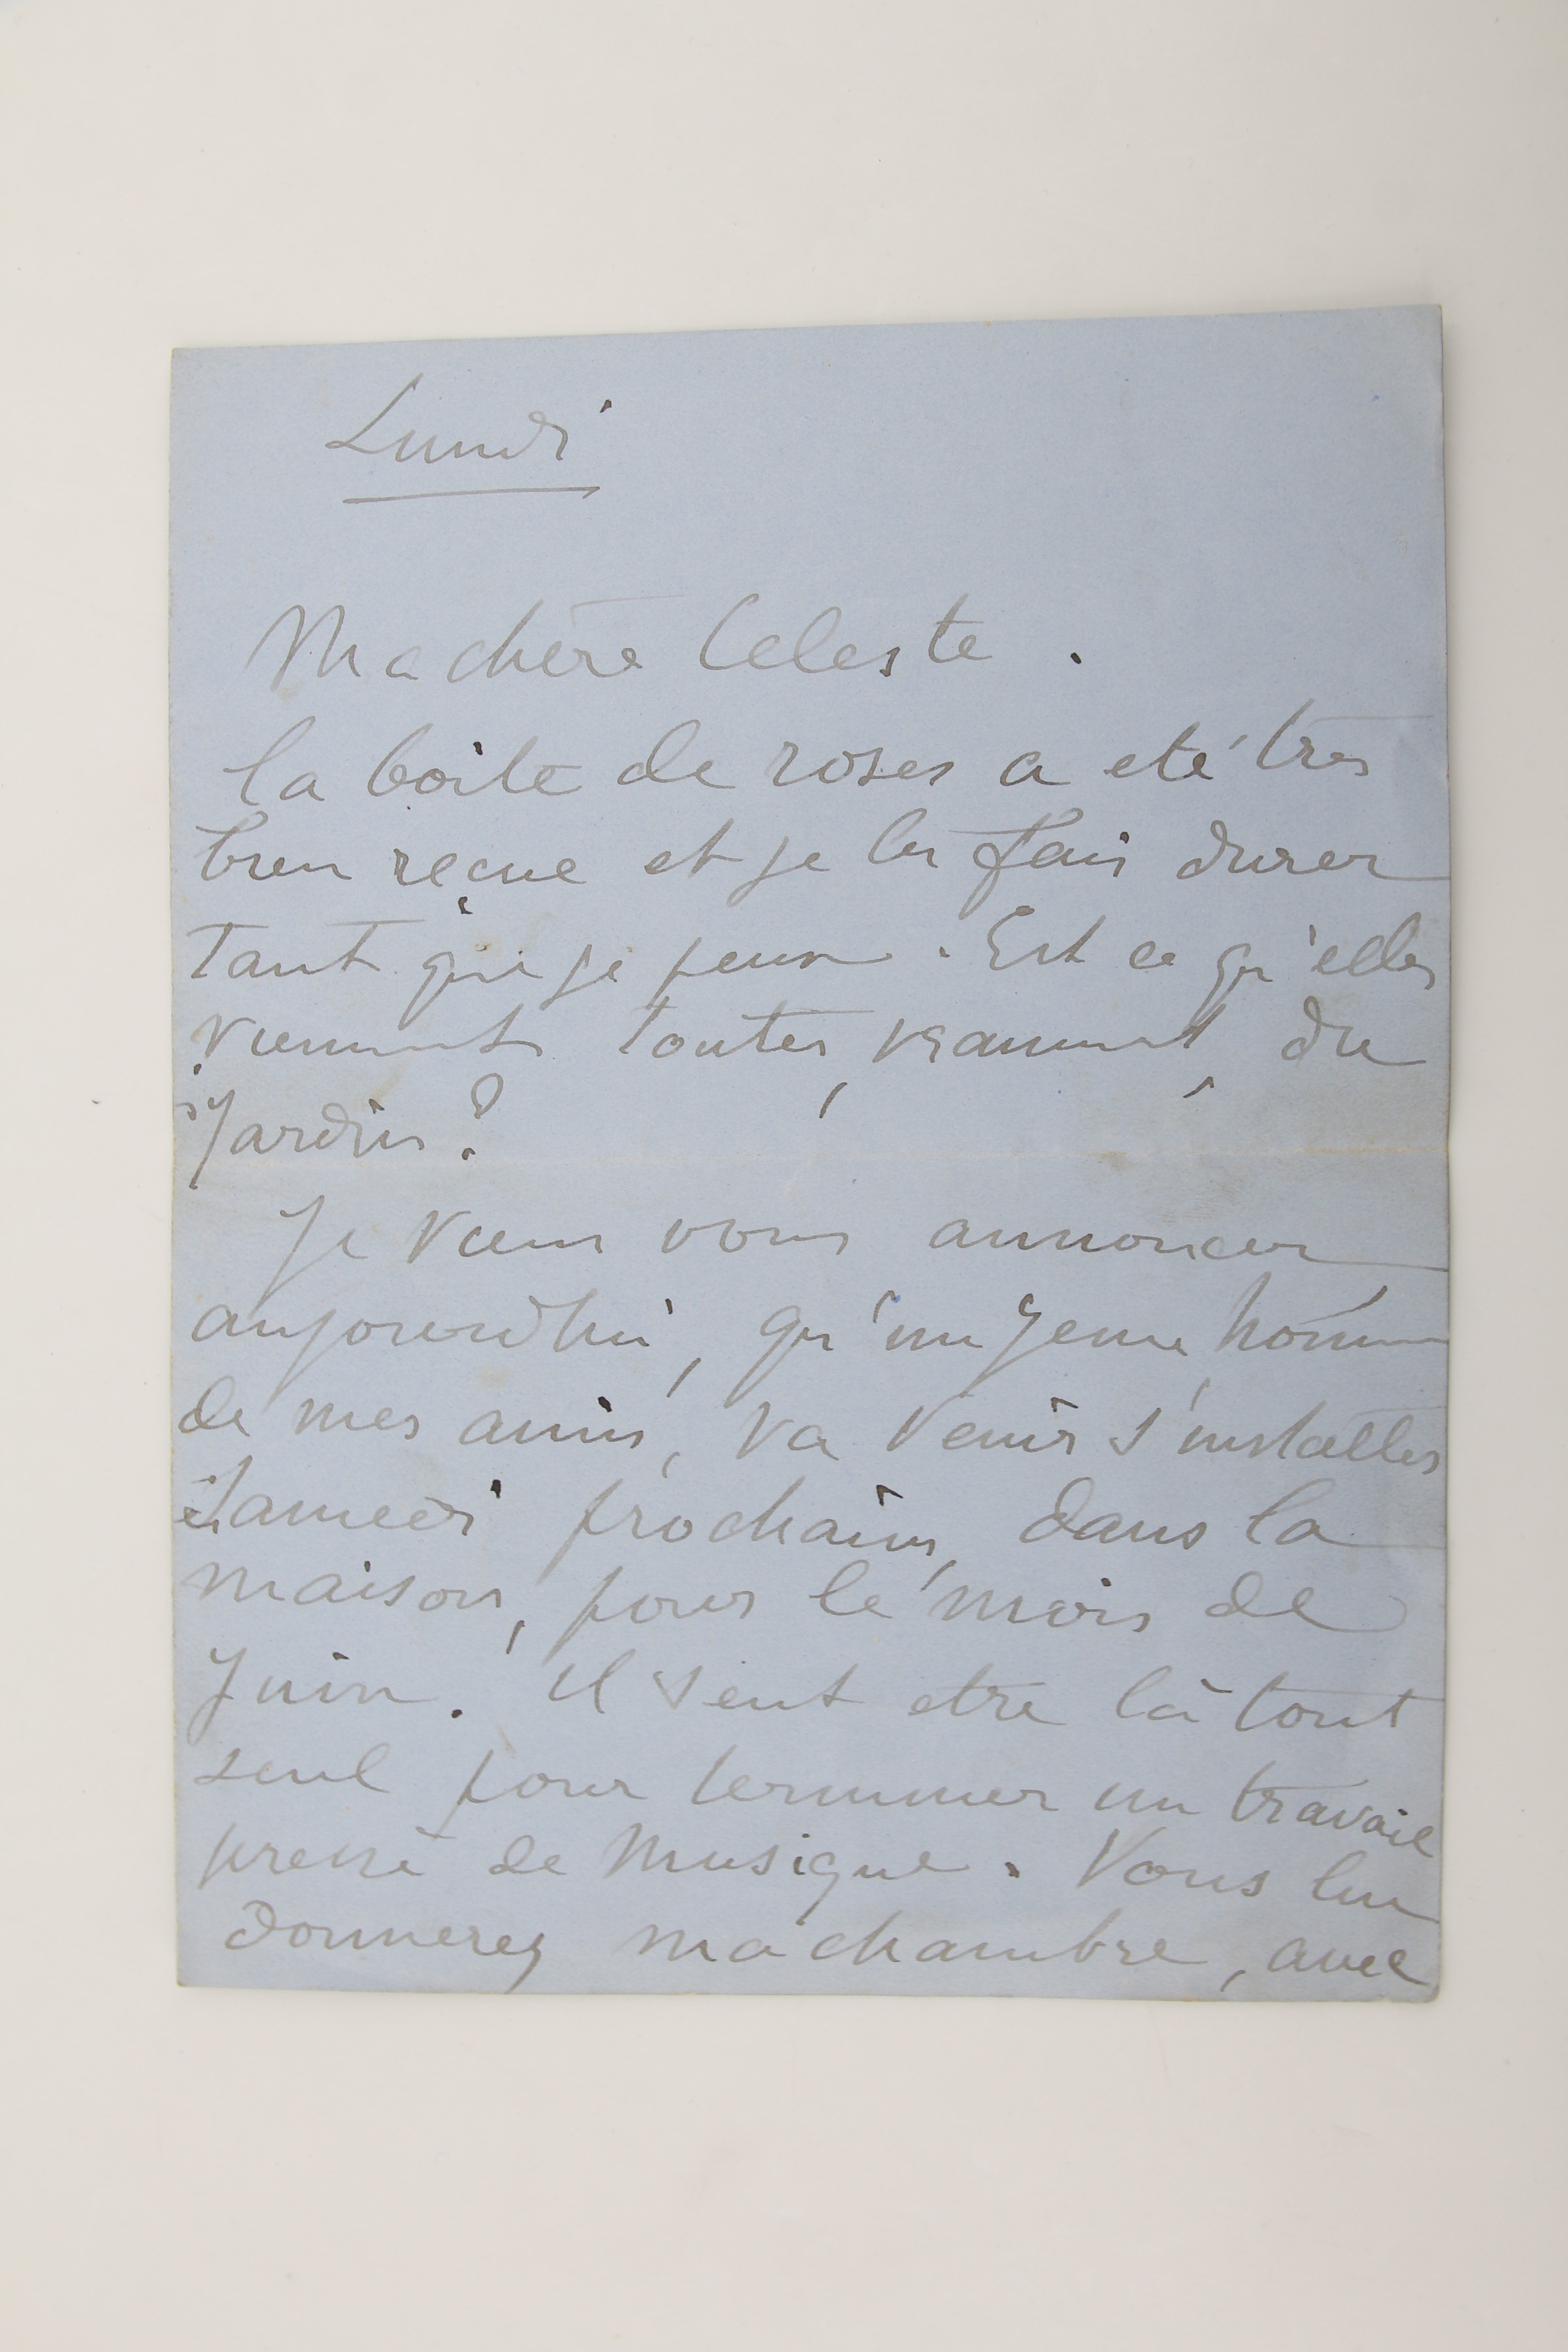 Lundi
Ma chère Celeste.
la boite de roses a eté très
bien reçue et je les fais durer
tant que je peux. Est ce qu'elles
viennent toutes, vraiment, du
jardin?
Je viens vous annoncer
aujourd'hui, qu'un jeune homme
de mes amis, va venir s'installer
Samedi prochain, dans la
maison, pour le mois de
Juin. Il veut etre là tout
seul pour terminer un travail
pressé de musique. Vous lui
donnerez ma chambre, avec